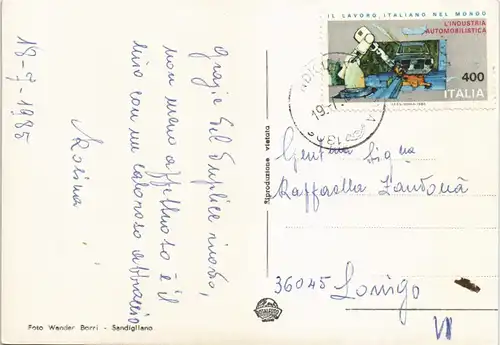 18-7-1985
Grazie
non meno affettuoso è il
mio con un caloroso abbraccio
Rosina
Foto Wender Borri - Sandigliano
Riproduzione vietata
VITALCOLOR
IL LAVORO ITALIANO NEL MONDO
L'INDUSTRIA
AUTOMOBILISTICA
400
ITALIA
19.7.
Gentma Sigra
Raffaella Zandonà
36045 Lonigo
VI